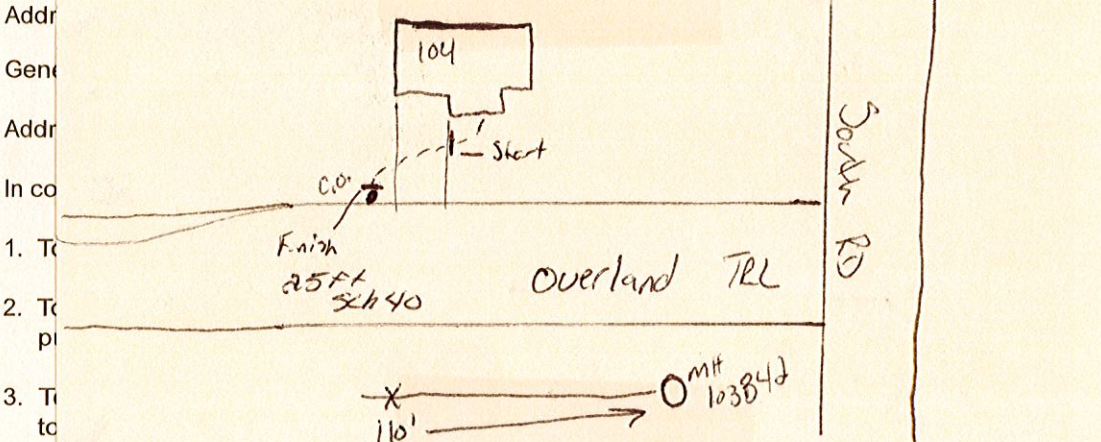 Addr
Gene
Addr
In co
1. To
2. To
pr
3. To
to
104
Start
C.O.
Finish
25 FT
Sch 40
Overland TRL
South RD
MH
103842
110'